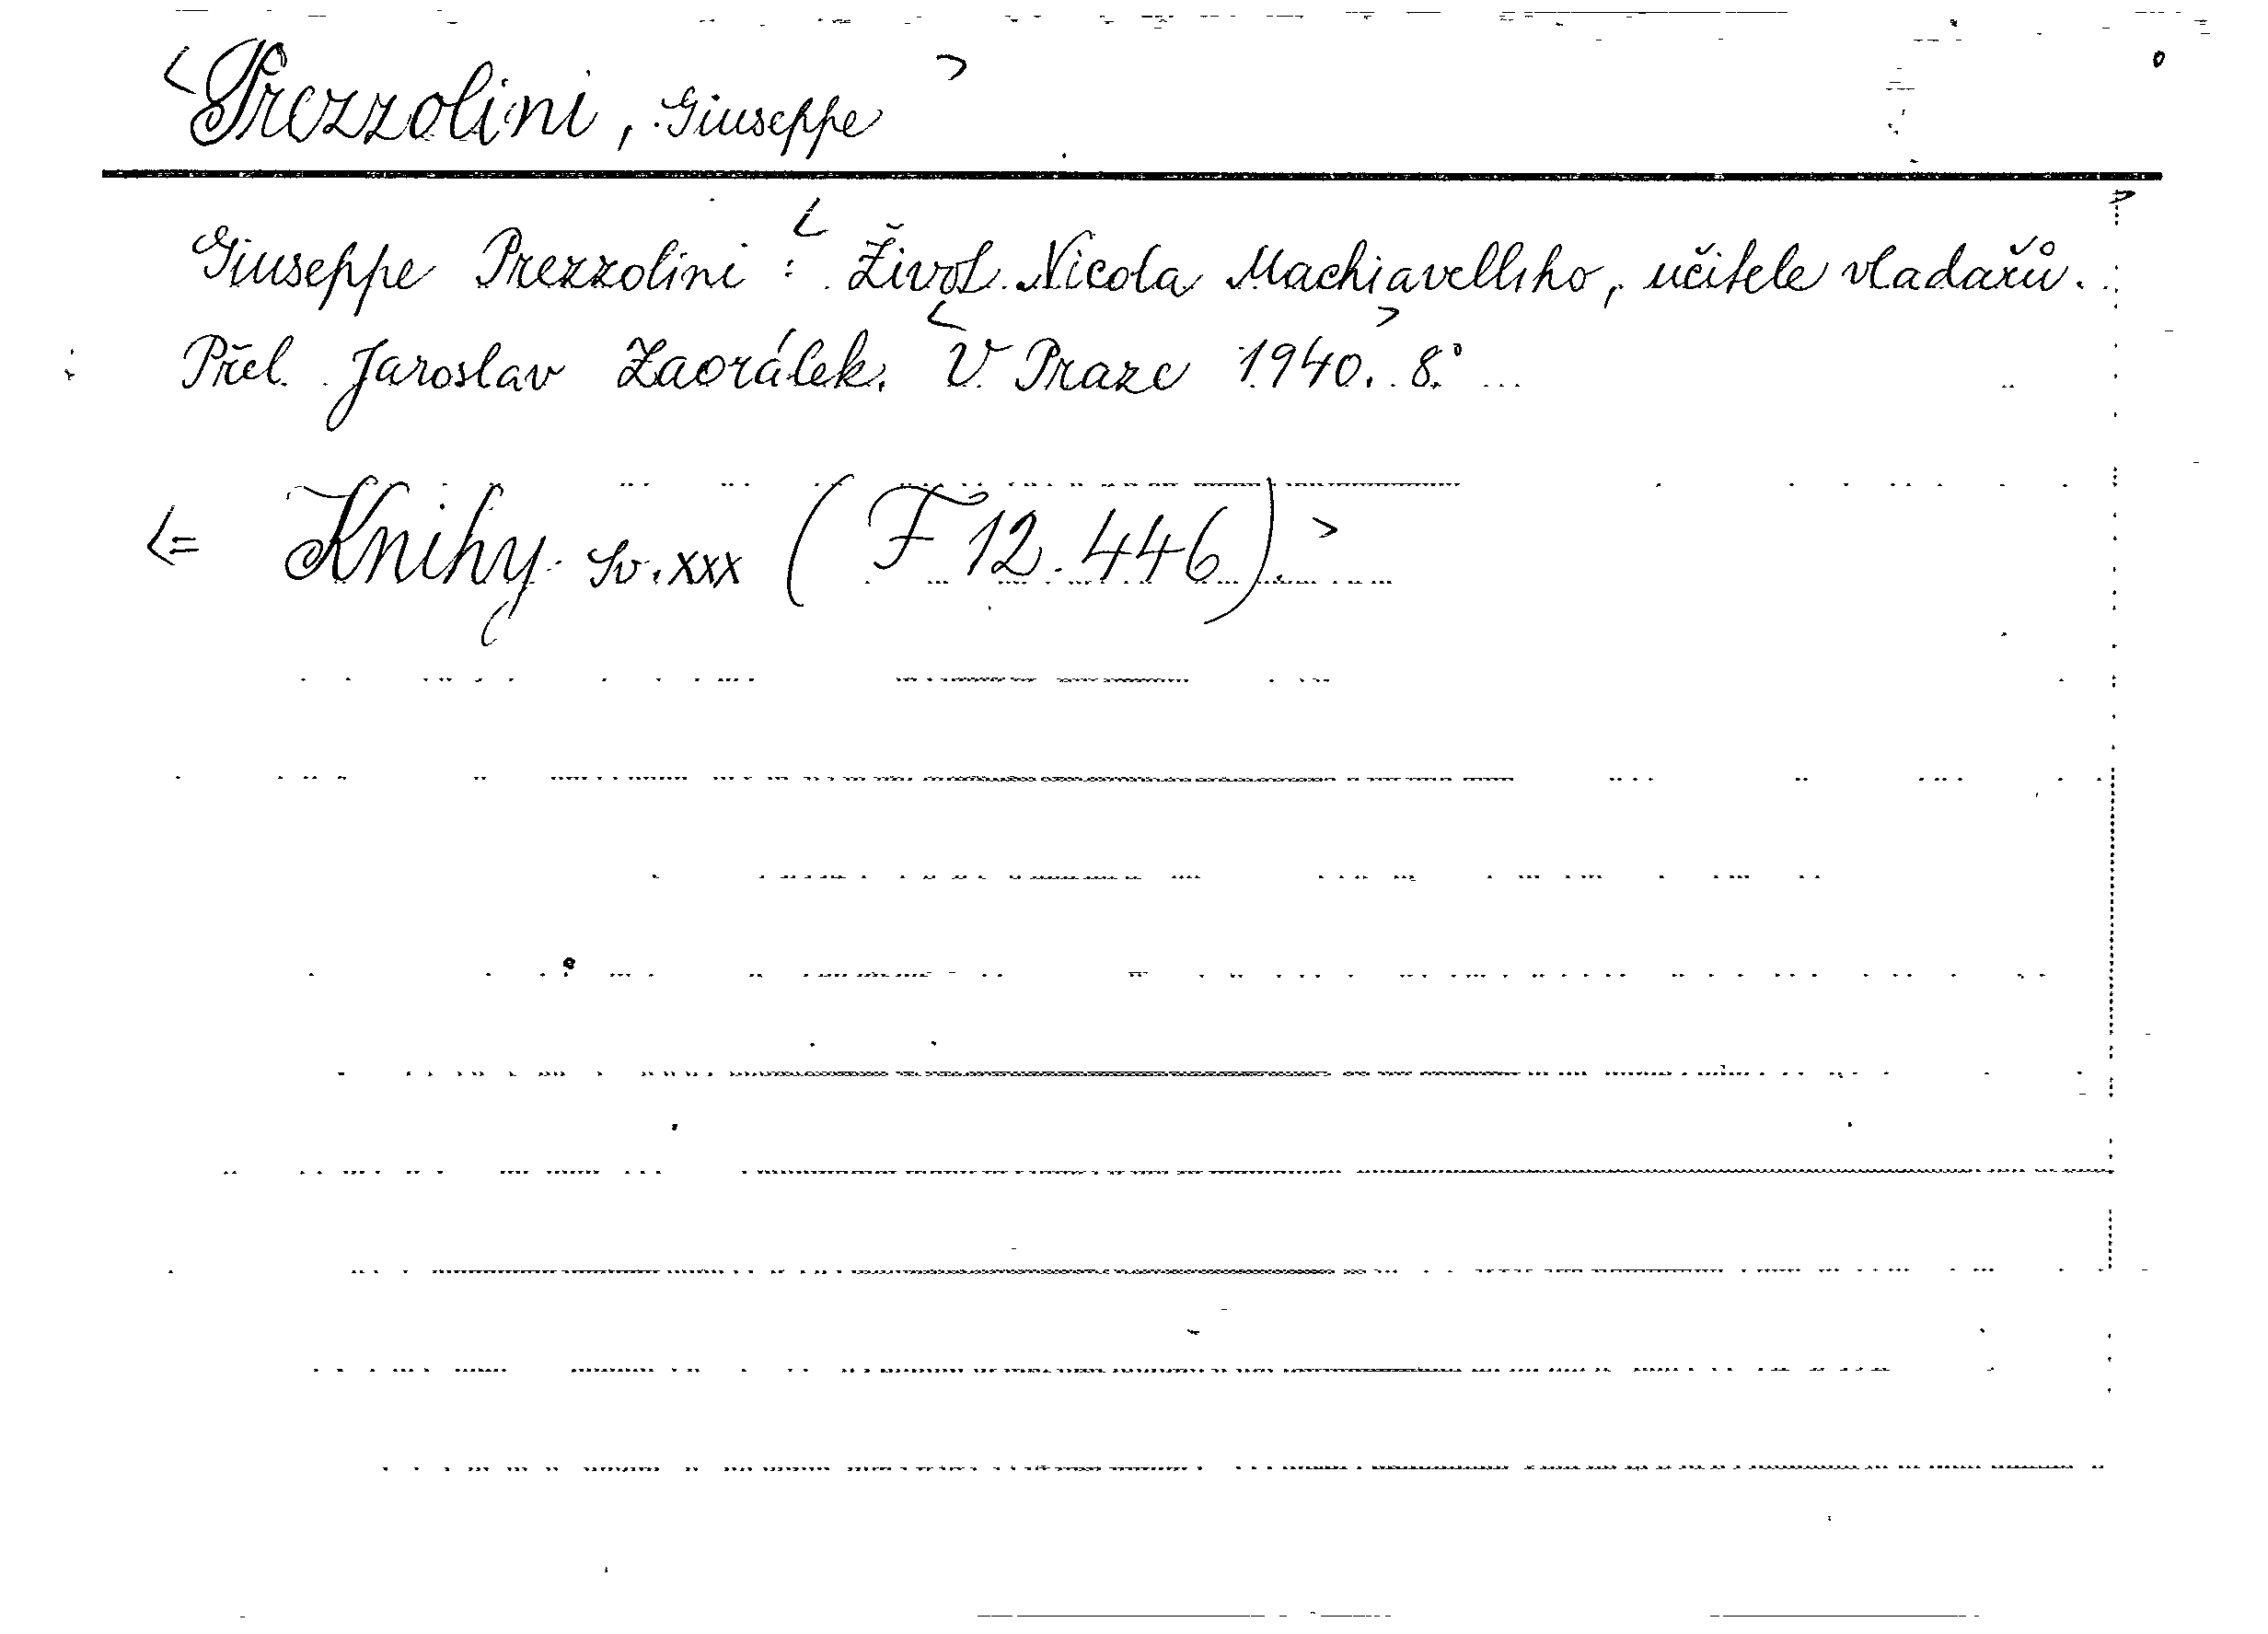 <Prezzolini, Giuseppe>
Giuseppe Prezzolini: <Život Nicola Machiavelliho, učitele vladařů.>
Přel. Jaroslav Zaorálek. <V Praze 1940.> 8°
<= Knihy sv. xxx (F 12.446).>